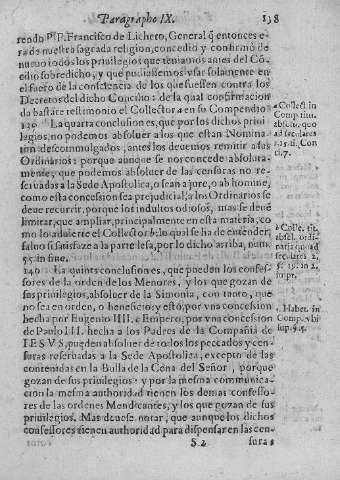 Paragrapho IX. 138
rendo P. P. Francisco de Lichero, General q̃ entonces e-
ra de nuestra sagrada religion, concedio y confirmò de
nueuo todos los priuilegios que teniamos antes del Cõ-
cilio sobredicho, y que pudiassemos vsar solamente en
el fuero de la consciencia de los que fuessen contra los
Decretos del dicho Concilio: de la qual confirmacion
da bastãte testimonio el Collector a en su Compendio
139 La quarta conclusion es, que por los dichos priui-
legios, no podemos absoluer a los que estan Nomina
tim descomulgados, antes los deuemos remitir a sus
Ordinarios: porque aunque se nos concede absoluta-
mente, que podemos absoluer de las censuras no re-
seruadas a la Sede Apostolica, o sean a jure, o ab homine,
como esta concession sea prejudicial a los Ordinarios se
deue recurrir, porque los indultos odiosos, mas se deuẽ
limitar, que ampliar, principalmente en esta materia, co
mo lo aduierte el Collector b: lo qual se ha de entender,
saluo si satisfaze a la parte lesa, por lo dicho arriba, num.
55. in fine.
140 La quinta conclusion es, que pueden los confes-
sores de la orden de los Menores, y los que gozan de
sus priuilegios, absoluer de la Simonia, con tanto, que
no sea en orden, o beneficio; y esto, por vna concession
hecha por Eugenio IIII. c Empero, por vna concession
de Paulo III. hecha a los Padres de la Compañia de
IESVS, pueden absoluer de todos los peccados y cen-
suras reseruadas a la Sede Apostolica, excepto de las
contenidas en la Bulla de la Cena del Señor, porque
gozan de sus priuilegios: y por la mesma communica-
cion la mesma autoridad tienen los demas confesso-
res de las ordenes Mendicantes, y los que gozan de sus
priuilegios. Mas deuese notar, que aunque los dichos
confessores tienen authoridad para dispensar en las cen-
S 2 suras
a Collect. in
Comp. titu.
absolu. quo
ad seculares
1. §. 11. Con
cl. 7.
b Colle. tit.
absol. ordi-
naria quo ad
seculares 2.
c Habet. in
Comp. vbi
sup. §. 5.